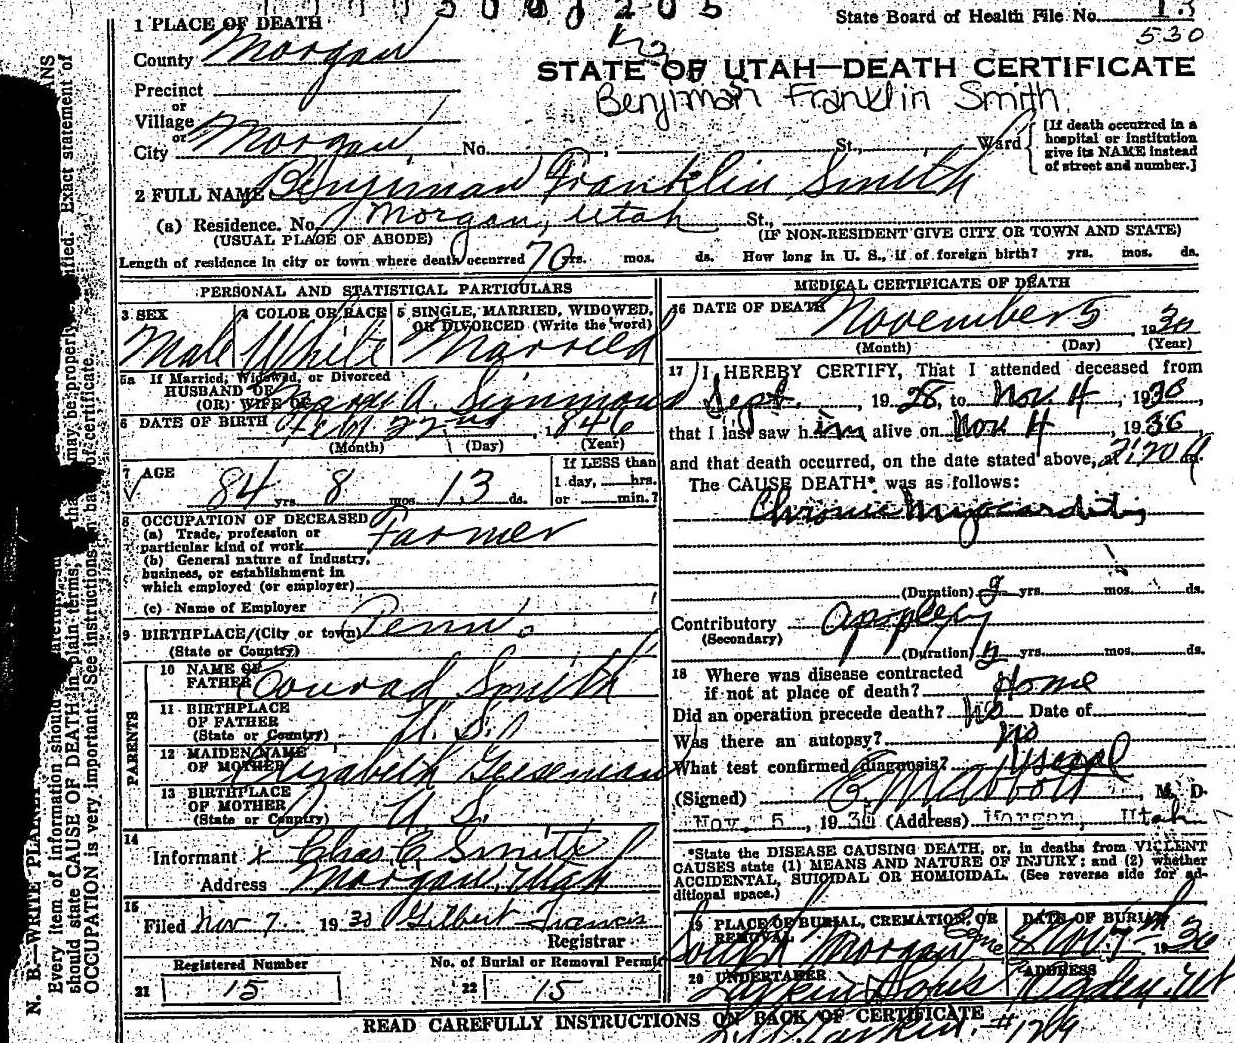 1 PLACE OF DEATH
State Board of Health File No. 13
530
County Morgan
STATE OF UTAH—DEATH CERTIFICATE
Precinct
Benjiman Franklin Smith
or
Village
or
City Morgan No. St., Ward
[If death occurred in a hospital or institution give its NAME instead of street and number.]
2 FULL NAME Benjiman Franklin Smith
(a) Residence. No. Morgan, Utah St.,
(USUAL PLACE OF ABODE) (IF NON-RESIDENT GIVE CITY OR TOWN AND STATE)
Length of residence in city or town where death occurred 70 yrs. mos. ds. How long in U. S., if of foreign birth? yrs. mos. ds.
PERSONAL AND STATISTICAL PARTICULARS
3 SEX
Male
4 COLOR OR RACE
White
5 SINGLE, MARRIED, WIDOWED, OR DIVORCED (Write the word)
Married
5a If Married, Widowed, or Divorced
HUSBAND OF
(OR) WIFE OF A. Simmons
6 DATE OF BIRTH Feb 22nd, 1846
(Month) (Day) (Year)
7 AGE
84 yrs. 8 mos. 13 ds.
If LESS than
1 day, hrs.
or min.?
8 OCCUPATION OF DECEASED
(a) Trade, profession or
particular kind of work Farmer
(b) General nature of industry,
business, or establishment in
which employed (or employer)
(c) Name of Employer
9 BIRTHPLACE (City or town) Penn.
(State or Country)
PARENTS
10 NAME OF
FATHER Conrad Smith
11 BIRTHPLACE
OF FATHER
(State or Country) U. S. A
12 MAIDEN NAME
OF MOTHER Elizabeth
13 BIRTHPLACE
OF MOTHER
(State or Country) U. S.
14
Informant x Chas. C. Smith
Address Morgan, Utah
15
Filed Nov 7. 1930 Gilbert Francis
Registrar
Registered Number
21 15
No. of Burial or Removal Permit
22 15
MEDICAL CERTIFICATE OF DEATH
16 DATE OF DEATH November 5, 1930
(Month) (Day) (Year)
17 I HEREBY CERTIFY, That I attended deceased from
Sept., 1928, to Nov 4, 1930,
that I last saw him alive on Nov 4, 1930
and that death occurred, on the date stated above, at
The CAUSE DEATH* was as follows:
Chronic Myocarditis
(Duration) yrs. mos. ds.
Contributory Apoplexy
(Secondary)
(Duration) yrs. mos. ds.
18 Where was disease contracted
if not at place of death? Home
Did an operation precede death? No Date of
Was there an autopsy? No
What test confirmed diagnosis?
(Signed) Abbott, M. D.
Nov. 5, 1930 (Address) Morgan, Utah
*State the DISEASE CAUSING DEATH, or, in deaths from VIOLENT
CAUSES state (1) MEANS AND NATURE OF INJURY; and (2) whether
ACCIDENTAL, SUICIDAL OR HOMICIDAL. (See reverse side for ad-
ditional space.)
19 PLACE OF BURIAL, CREMATION, OR
REMOVAL
South Morgan Cem
DATE OF BURIAL
Nov. 7th 1930
20 UNDERTAKER
Larkin & Sons
ADDRESS
Ogden, Ut
READ CAREFULLY INSTRUCTIONS ON BACK OF CERTIFICATE.
Larkin. #1769
N. B.—WRITE PLAINLY
Every item of information should
should state CAUSE OF DEATH in plain terms,
OCCUPATION is very important. See instructions
may be properly
Exact statement of
of certificate.